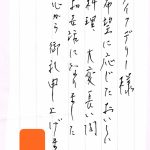 ライフデリー様
希望に応じたおいしい
料理、大変長い間
お世話になりました
心から御礼申し上げま